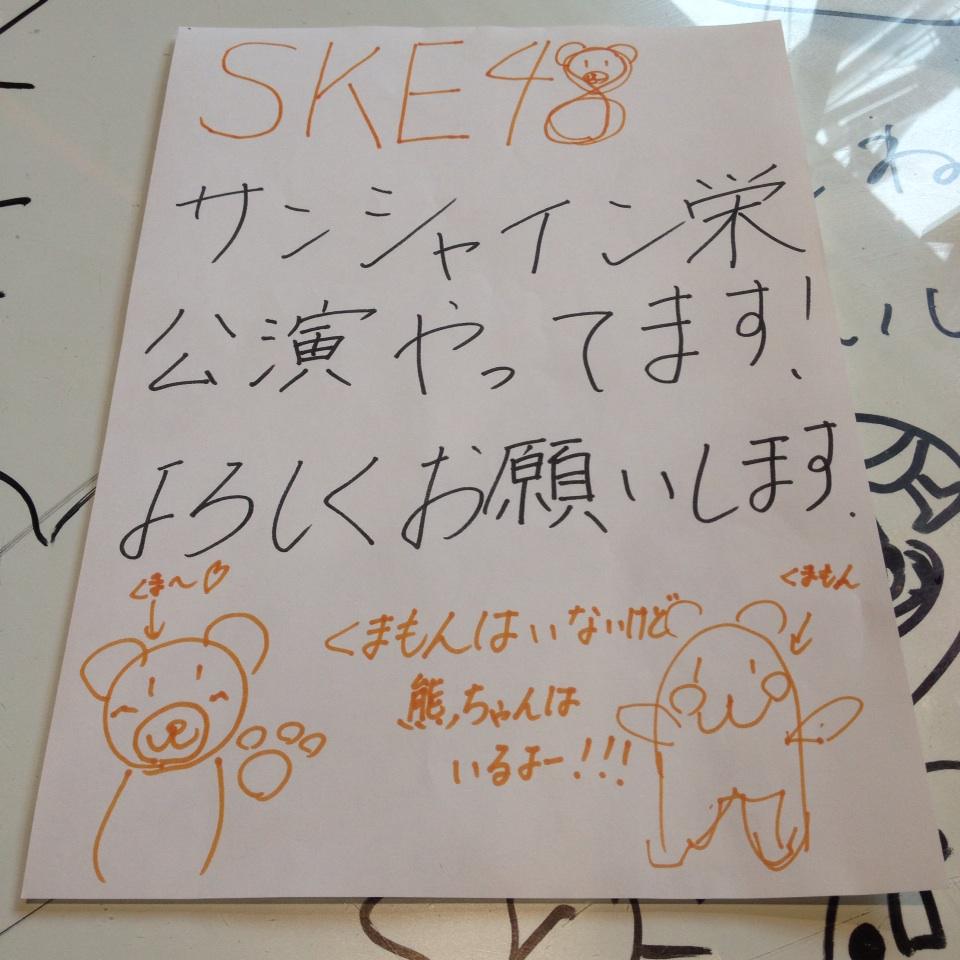 SKE48
サンシャイン栄
公演やってます!
よろしくお願いします.
くま〜♡
くまもん
くまもんはいないけど
熊ちゃんは
いるよー!!!